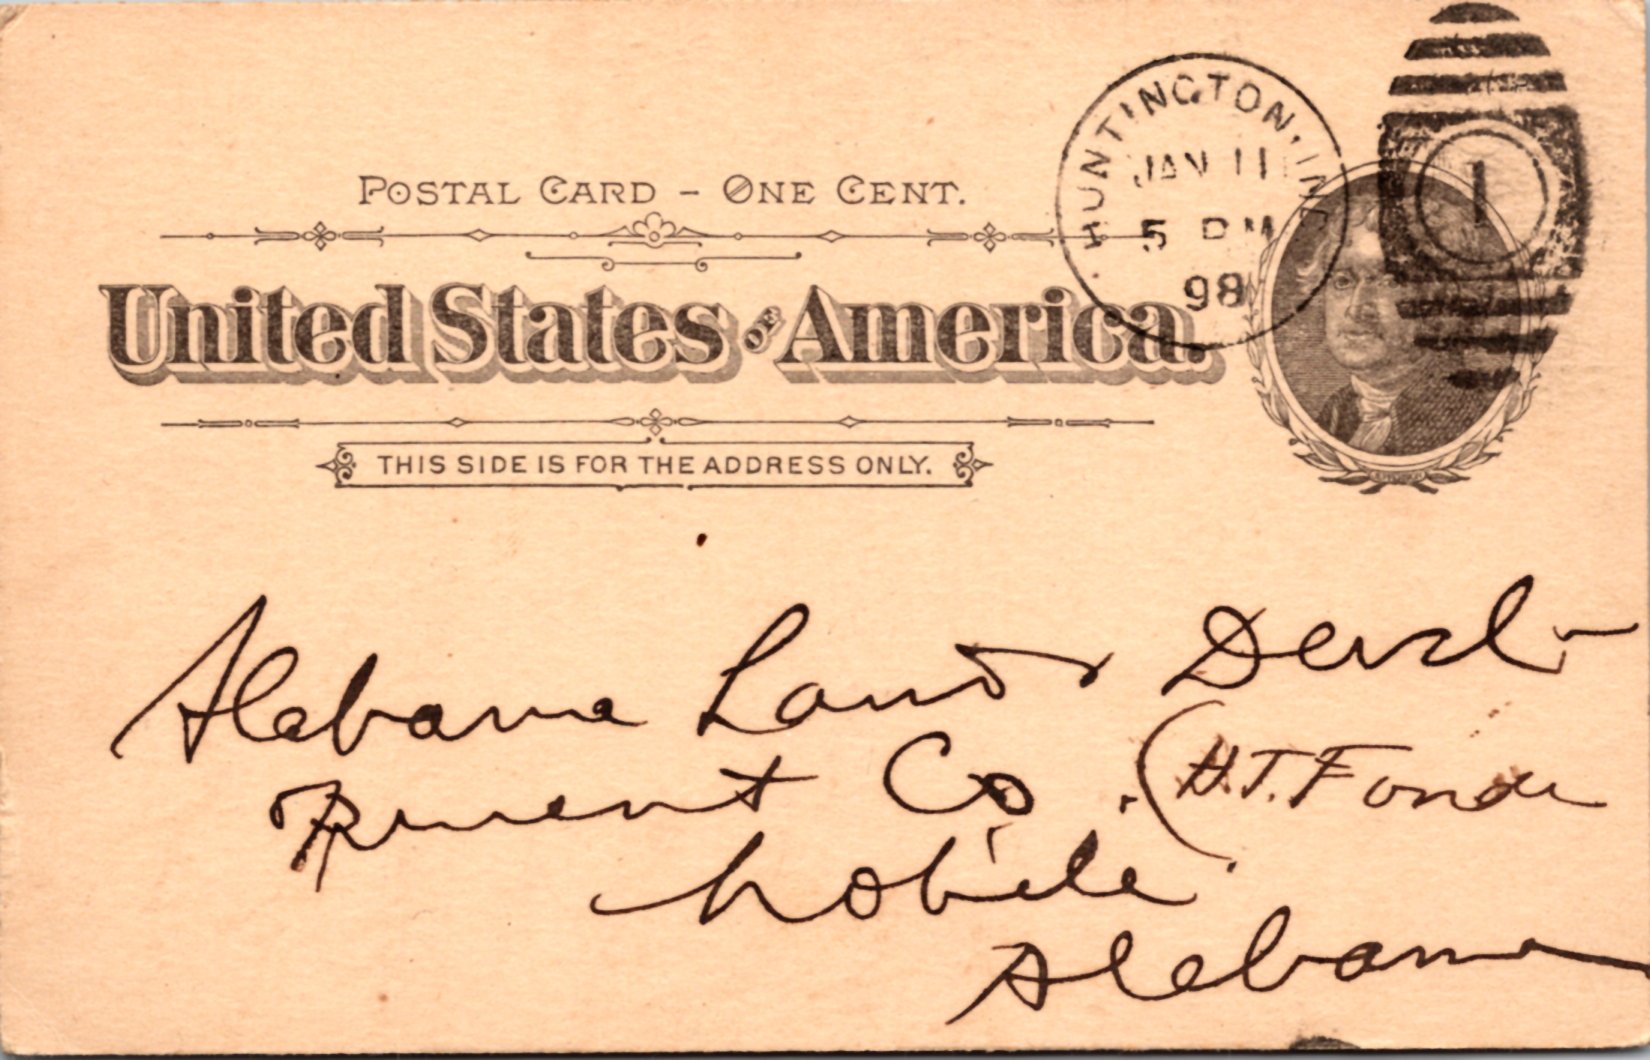 POSTAL CARD – ONE CENT.
United States OF America.
THIS SIDE IS FOR THE ADDRESS ONLY.
HUNTINGTON, IND.
JAN 11
5 PM
98
1
Alabama Land & Devel-
opment Co. (H.T. Fonde
Mobile
Alabama